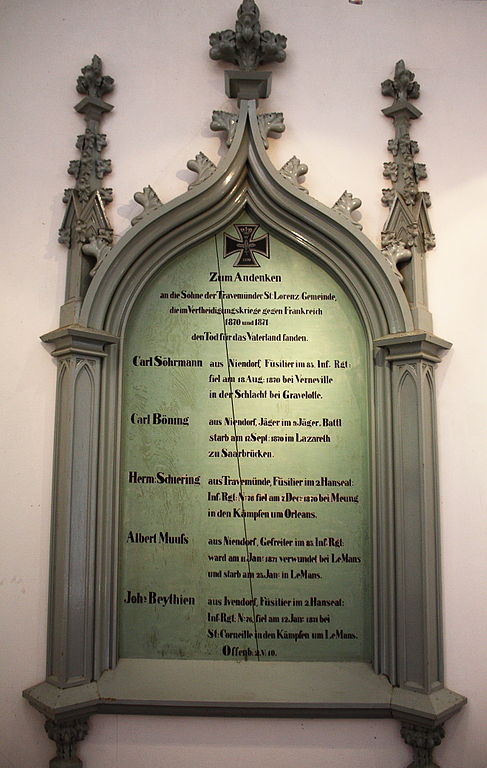 Zum Andenken
an die Söhne der Travemünder St: Lorenz-Gemeinde,
die im Vertheidigungskriege gegen Frankreich
1870 und 1871
den Tod für das Vaterland fanden.
Carl Söhrmann aus Niendorf, Füsilier im 85. Inf. Rgt:
fiel am 18 Aug: 1870 bei Verneville
in der Schlacht bei Gravelotte.
Carl Böning aus Niendorf, Jäger im 9 Jäger. Battl
starb am 12 Sept: 1870 im Lazareth
zu Saarbrücken.
Herm: Schering aus Travemünde, Füsilier im 2 Hanseat:
Inf. Rgt: No: 76 fiel am 2 Dec: 1870 bei Meung
in den Kämpfen um Orleans.
Albert Muuſs aus Niendorf, Gefreiter im 85 Inf. Rgt:
ward am 11 Jan: 1871 verwundet bei Le Mans
und starb am 25 Jan: in Le Mans.
Joh: Beythien aus Ivendorf, Füsilier im 2 Hanseat:
Inf. Rgt: No: 76, fiel am 12 Jan: 1871 bei
St: Corneille in den Kämpfen um Le Mans.
Offenb: 2. V. 10.